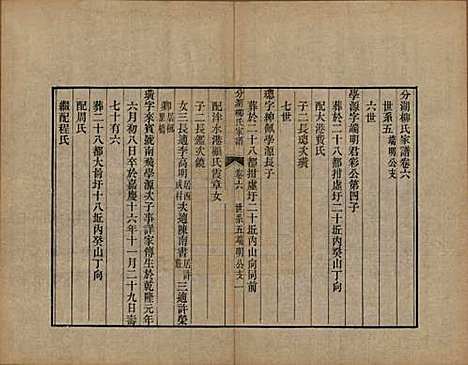 分湖柳氏家譜卷六
世系五 端明公支
六世
學源字端明君彩公第四子
配大港費氏
葬於二十八都拑虛圩二十坵丙山向
子二長璁次璜
七世
璁字紳佩學源長子
葬於二十八都拑虛圩二十坵丙山向同前
分湖柳氏家譜 卷六 世系五 端明公支 一
配泮水港顧氏霞章女
子二長鑑次鏡
女三長適李高明 次適陳南書 三適許榮
璜字來賓號南飛學源次子事詳家傳生於乾隆元年
六月初八日卒於嘉慶十六年十一月二十九日壽
七十有六
葬二十八都大首圩十八坵內癸山丁向
配周氏
繼配程氏